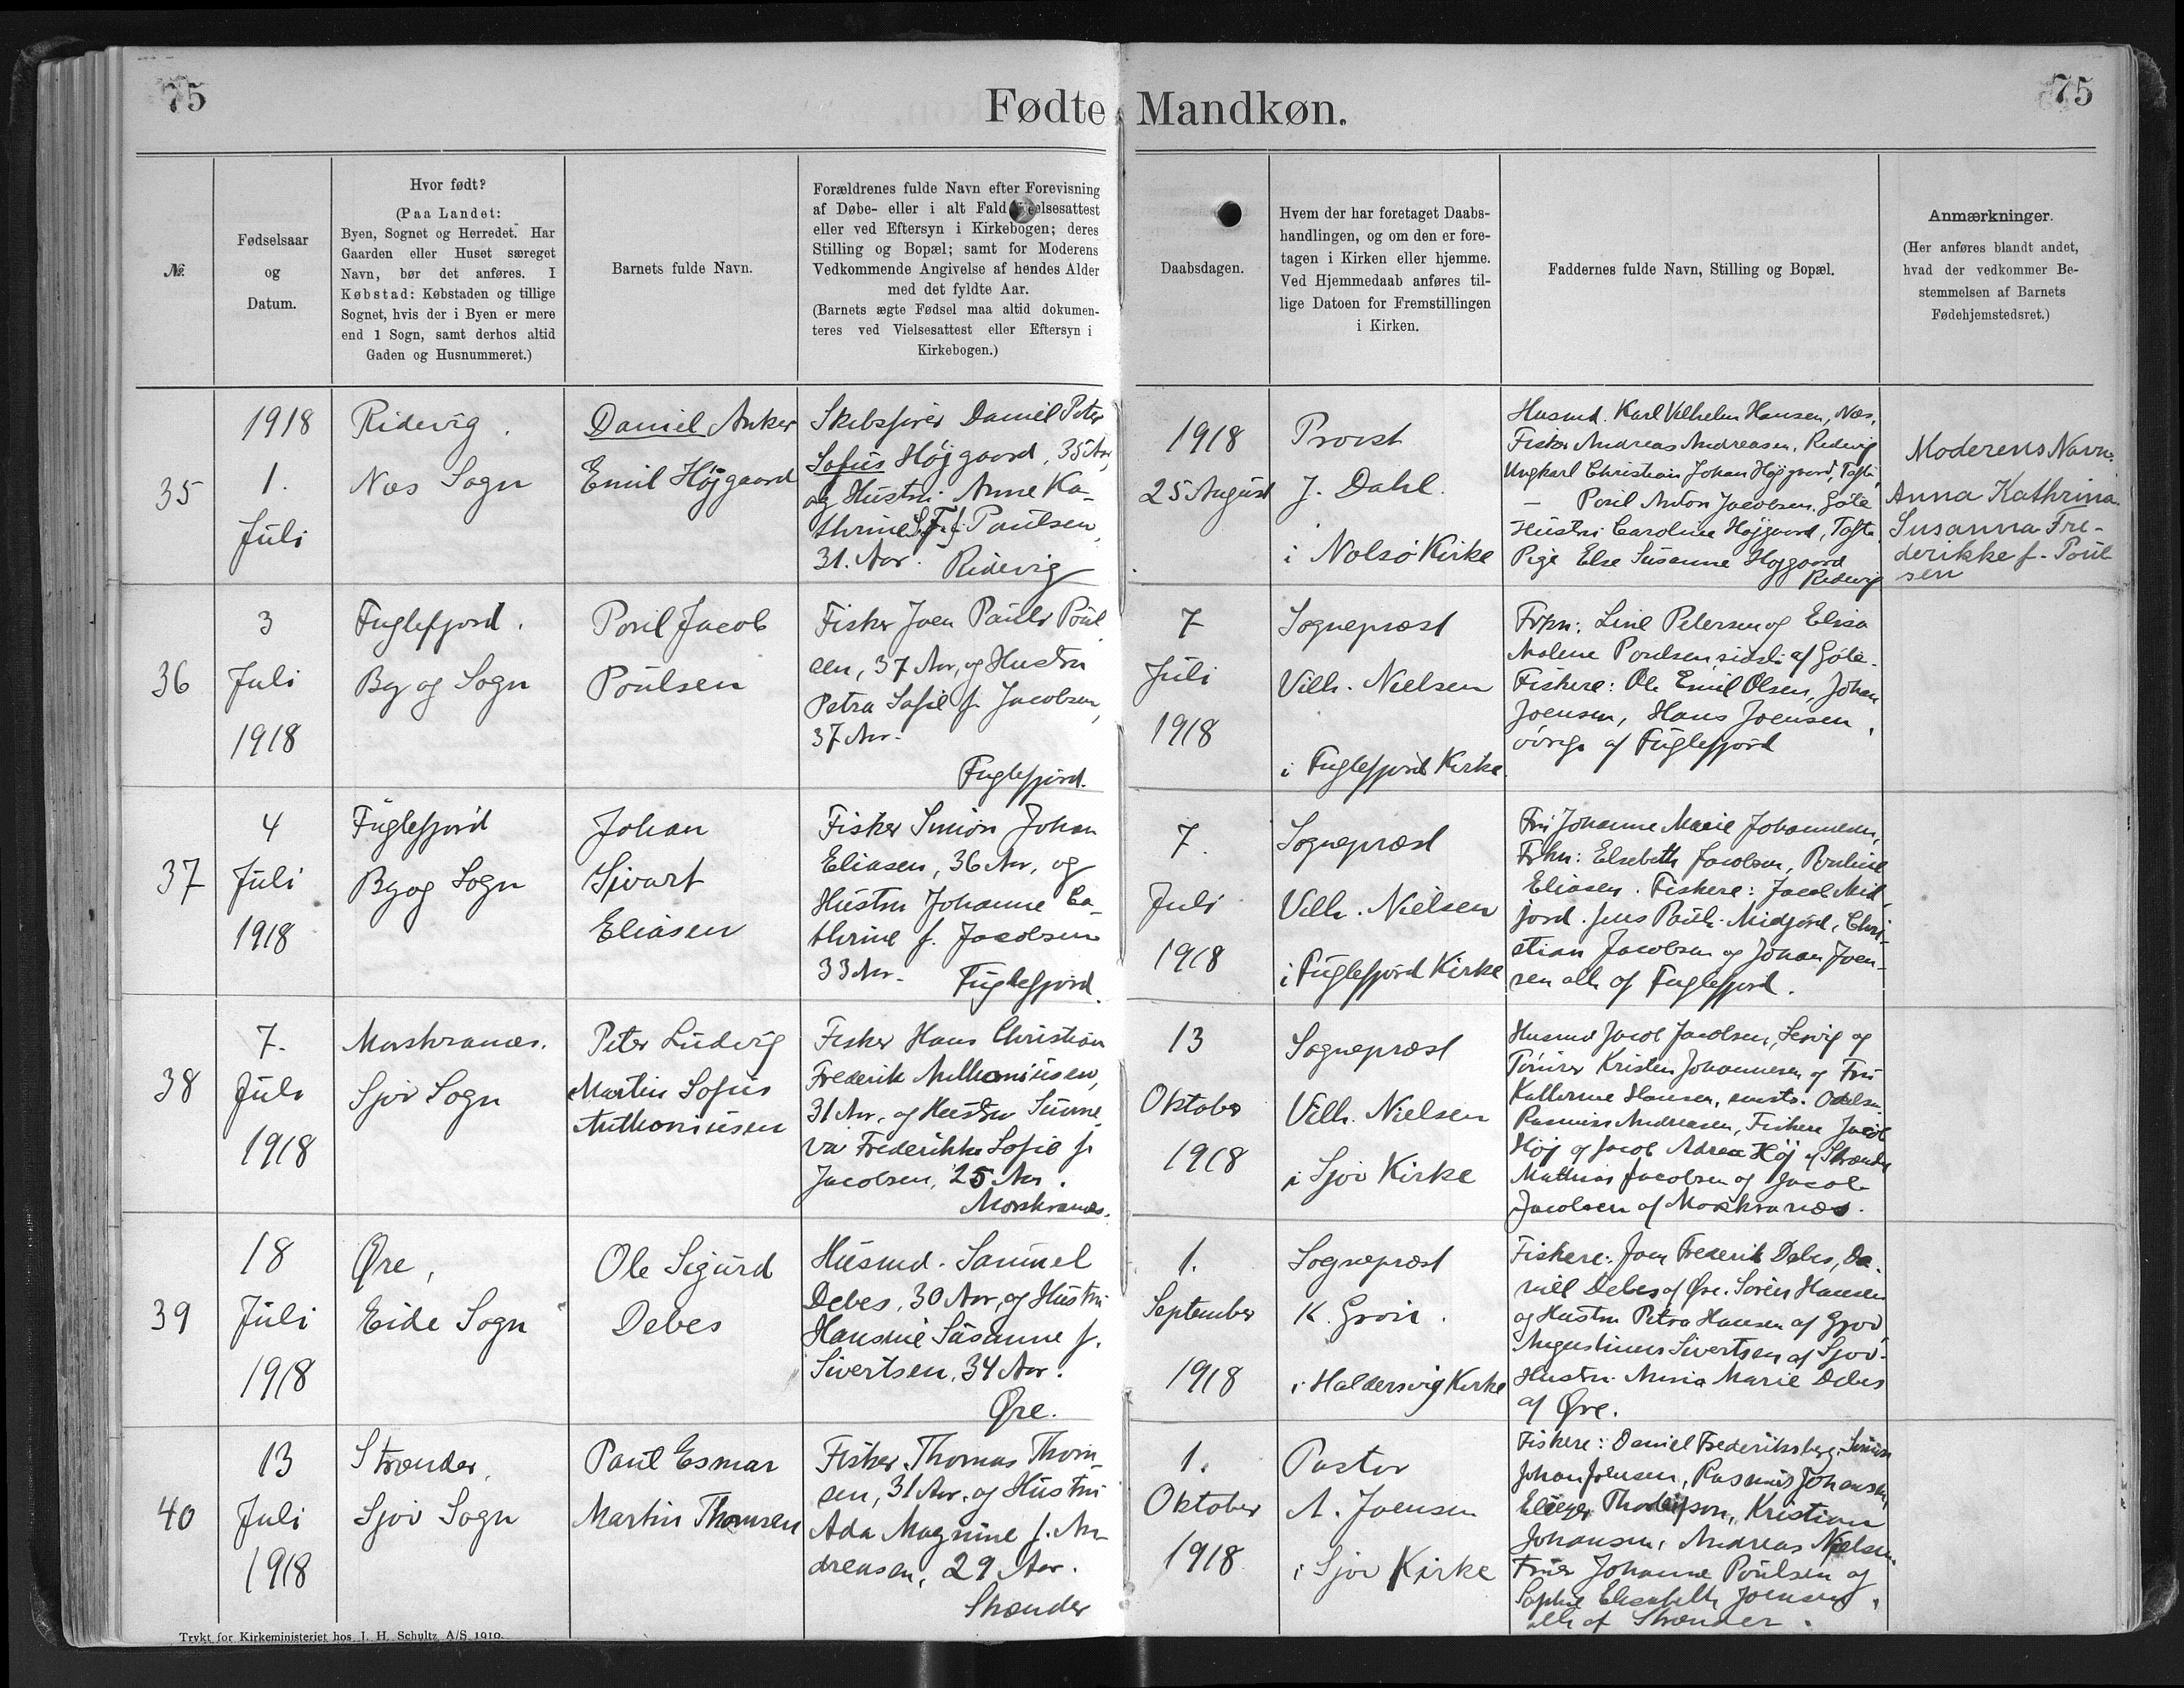 75
75
Fødte Mandkøn.
№.
Fødselsaar
og
Datum.
Hvor født?
(Paa Landet:
Byen, Sognet og Herredet. Har
Gaarden eller Huset særeget
Navn, bør det anføres. I
Købstad: Købstaden og tillige
Sognet, hvis der i Byen er mere
end 1 Sogn, samt derhos altid
Gaden og Husnummeret.)
Barnets fulde Navn.
Forældrenes fulde Navn efter Forevisning
af Døbe- eller i alt Fald Fødselsattest
eller ved Eftersyn i Kirkebogen; deres
Stilling og Bopæl; samt for Moderens
Vedkommende Angivelse af hendes Alder
med det fyldte Aar.
(Barnets ægte Fødsel maa altid dokumen-
teres ved Vielsesattest eller Eftersyn i
Kirkebogen.)
Daabsdagen.
Hvem der har foretaget Daabs-
handlingen, og om den er fore-
tagen i Kirken eller hjemme.
Ved Hjemmedaab anføres til-
lige Datoen for Fremstillingen
i Kirken.
Faddernes fulde Navn, Stilling og Bopæl.
Anmærkninger.
(Her anføres blandt andet,
hvad der vedkommer Be-
stemmelsen af Barnets
Fødehjemstedsret.)
35
1918
1.
Juli
Ridevig.
Næs Sogn
Daniel Anker
Emil Højgaard
Skibsfører Daniel Peter
Sofus Højgaard, 35 Aar,
og Hustru Anne Ka-
thrine S. F. f. Paulsen,
31. Aar. Ridevig
1918
25 August
Provst
J. Dahl.
i Nolsö Kirke
Husmd. Karl Vilhelm Hansen, Næs,
Fisker Andreas Andreasen, Ridevig
Ungkarl Christian Johan Højgaard, Tofte,
— Poul Anton Jacobsen, Göte
Hustru Caroline Højgaard, Tofte
Pige Else Susanne Højgaard
Ridevig
Moderens Navn:
Anna Kathrina
Susanna Fre-
derikke f. Poul
sen
36
3
Juli
1918
Fuglefjord.
By og Sogn
Poul Jacob
Poulsen
Fisker Joen Pauli Poul
sen, 37 Aar, og Hustru
Petra Sofie f. Jacobsen,
37 Aar.
Fuglefjord.
7
Juli
1918
Sognepræst
Vilh. Nielsen
i Fuglefjord Kirke
Frkn: Line Petersen og Elisa
Malene Poulsen, sidste af Göte.
Fiskere: Ole Emil Olsen, Johan
Joensen, Hans Joensen,
övrige af Fuglefjord
37
4
Juli
1918
Fuglefjord
By og Sogn
Johan
Sivart
Eliasen
Fisker Simon Johan
Eliasen, 36 Aar, og
Hustru Johanne Ca-
thrine f. Jacobsen
33 Aar. Fuglefjord.
7.
Juli
1918
Sognepræst
Vilh. Nielsen
i Fuglefjord Kirke
Fru Johanne Marie Johannesen,
Frkn: Elsebeth Jacobsen, Pauline
Eliasen. Fiskere: Jacob Mid
jord. Jens Pauli Midjord, Chri-
stian Jacobsen og Johan Joen-
sen alle af Fuglefjord.
38
7.
Juli
1918
Morskranæs.
Sjov Sogn
Peter Ludvig
Martin Sofus
Anthoniusen
Fisker Hans Christian
Frederik Anthoniusen,
31 Aar, og Hustru Sunne
va Frederikke Sofie f.
Jacobsen, 25 Aar.
Morskranæs.
13
Oktober
1918
Sognepræst
Vilh. Nielsen
i Sjov Kirke
Husmd Jacob Jacobsen, Lervig og
Tømrer Kristen Johannesen og Fru
Katherine Hansen,
Rasmus Andreasen, Fiskere Jacob
Høj og Jacob Andrea Høj af Strænder
Mathias Jacobsen og Jacob
Jacobsen af Morskranæs.
39
18
Juli
1918
Øre,
Eide Sogn
Ole Sigurd
Debes
Husmd. Samuel
Debes, 30 Aar, og Hustru
Hansine Susanne f.
Sivertsen, 34 Aar.
Øre.
1.
September
1918
Sognepræst
K. Groir.
i Haldersvig Kirke
Fiskere: Joen Frederik Debes, Da-
niel Debes af Øre. Sören Hansen
og Hustru Petra Hansen af Gjov,
Augustinus Sivertsen af Sjov.
Hustru Maria Marie Debes
af Øre.
40
13
Juli
1918
Strænder,
Sjov Sogn
Paul Esmar
Martin Thomsen
Fisker Thomas Thom-
sen, 31 Aar, og Hustru
Ada Magnine f. An-
dreasen, 29 Aar.
Strænder
1.
Oktober
1918
Pastor
A. Joensen
i Sjov Kirke
Fiskere: Daniel Frederiksberg, Simon
Johan Joensen, Rasmus Johansen,
Kristian
Johansen, Andreas Nielsen
Fruer Johanne Poulsen og
Sophie Elisabeth Joensen,
alle af Strænder.
Trykt for Kirkeministeriet hos J. H. Schultz A/S 1919.